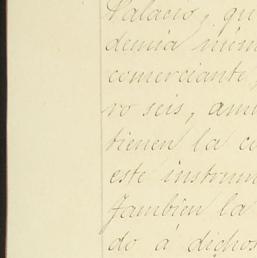 Palacio, qu
demia núm
comerciante,
ro seis, am
tienen la c
este instrum
Tambien la
do á dichos